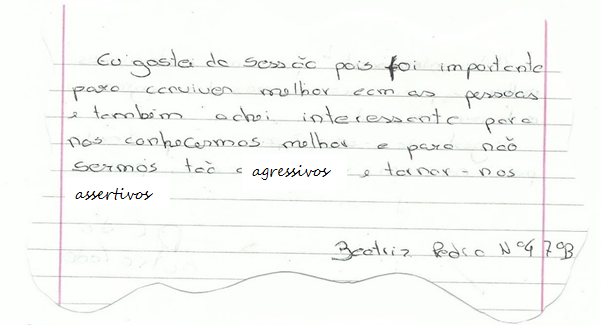 Eu gostei da sessão pois foi importante
para conviver melhor com as pessoas
e também achei interessante para
nos conhecermos melhor e para não
sermos tão agressivos e tornar-nos
assertivos
Beatriz Pedro Nº4 7ºB